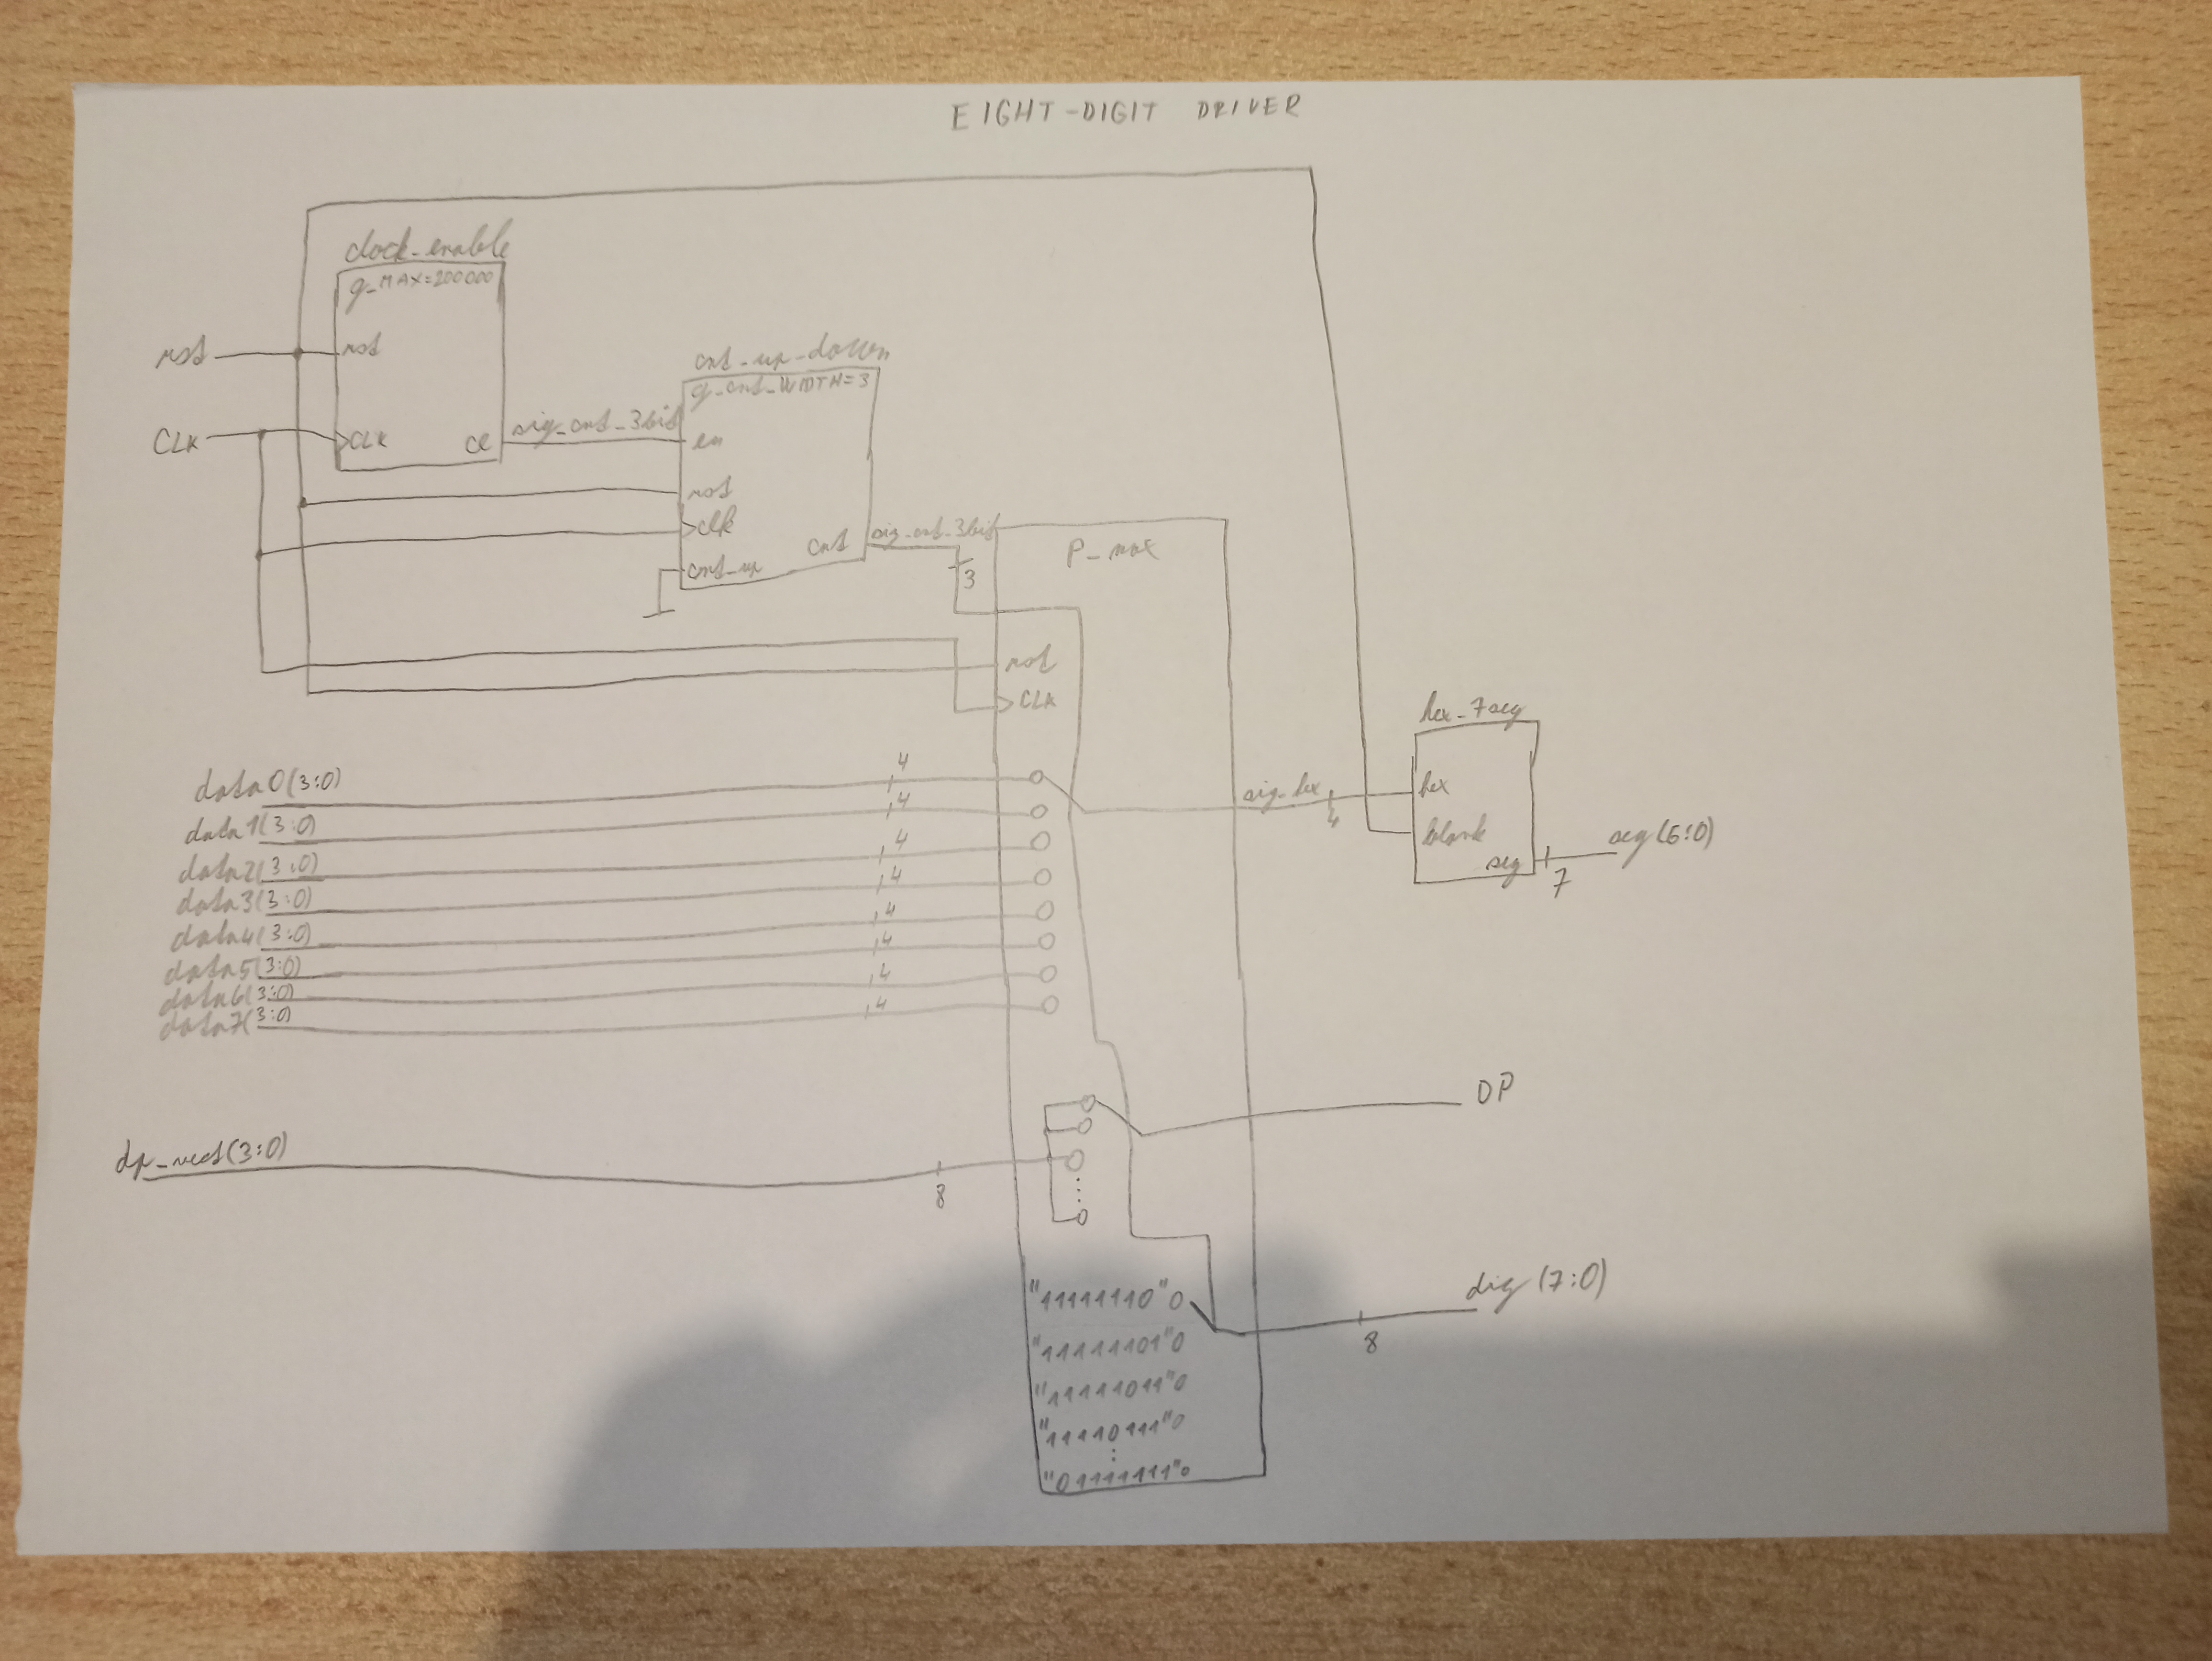 EIGHT-DIGIT DRIVER
clock_enable
g_MAX=200000
rst
rst
CLK
CLK
ce
sig_cnt_3bit
cnt_up_down
g_cnt_WIDTH=3
en
rst
clk
cnt_up
cnt
sig_cnt_3bit
3
P_mux
rst
CLK
data0(3:0)
4
data1(3:0)
4
data2(3:0)
4
data3(3:0)
4
data4(3:0)
4
data5(3:0)
4
data6(3:0)
4
data7(3:0)
4
sig_hex
4
hex_7seg
hex
blank
seg
7
seg(6:0)
DP
dp_vect(3:0)
8
"11111110"
"11111101"
"11111011"
"11110111"
"01111111"
dig(7:0)
8